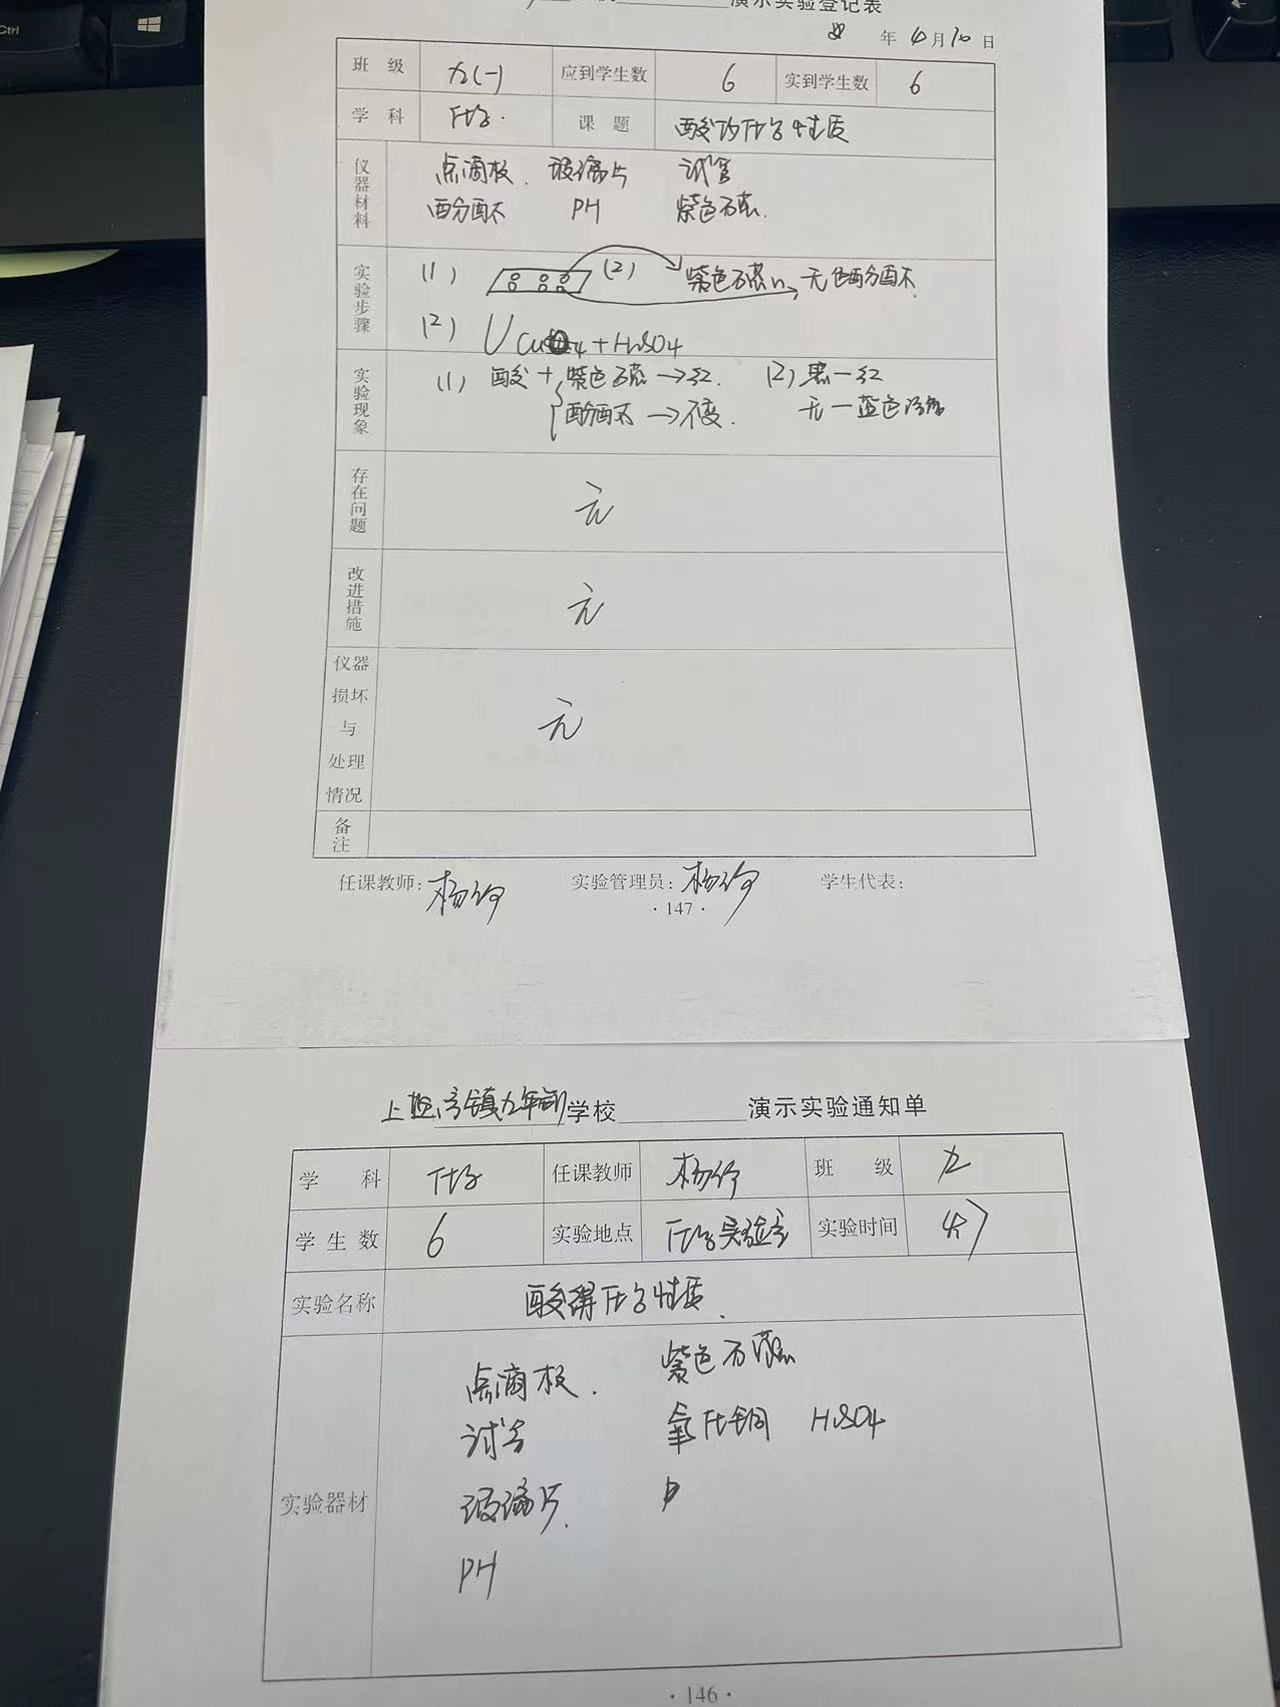 Ctrl
演示实验登记表
年 4月10日
班 级 九(一) 应到学生数 6 实到学生数 6
学 科 化学. 课 题 酸的化学性质
仪器材料 点滴板. 玻璃片 试管
酚酞 PH 紫色石蕊.
实验步骤 (1) (2) 紫色石蕊 无色酚酞
(2) +H2SO4
实验现象 (1) 酸+ 紫色石蕊→红. (2) 黑—红
酚酞→不变. 无—蓝色溶液
存在问题 无
改进措施 无
仪器损坏与处理情况 无
备注
任课教师: 实验管理员: 学生代表:
·147·
镇九年制学校 演示实验通知单
学 科 化学 任课教师 班 级 九
学 生 数 6 实验地点 化学实验室 实验时间
实验名称 酸得化学性质.
实验器材 点滴板. 紫色石蕊
试管 氧化铜 H2SO4
玻璃片.
PH
·146·